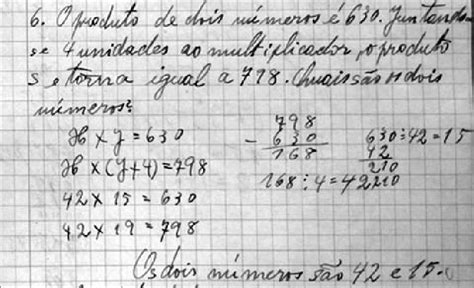 6. O produto de dois números é 630. Juntando-
se 4 unidades ao multiplicador, o produto
se torna igual a 798. Quais são os dois
números?
x × y = 630
x × (y+4) = 798
42 × 15 = 630
42 × 19 = 798
798
- 630
168
168 : 4 = 42
630 ÷ 42 = 15
42
210
210
Os dois números são 42 e 15.